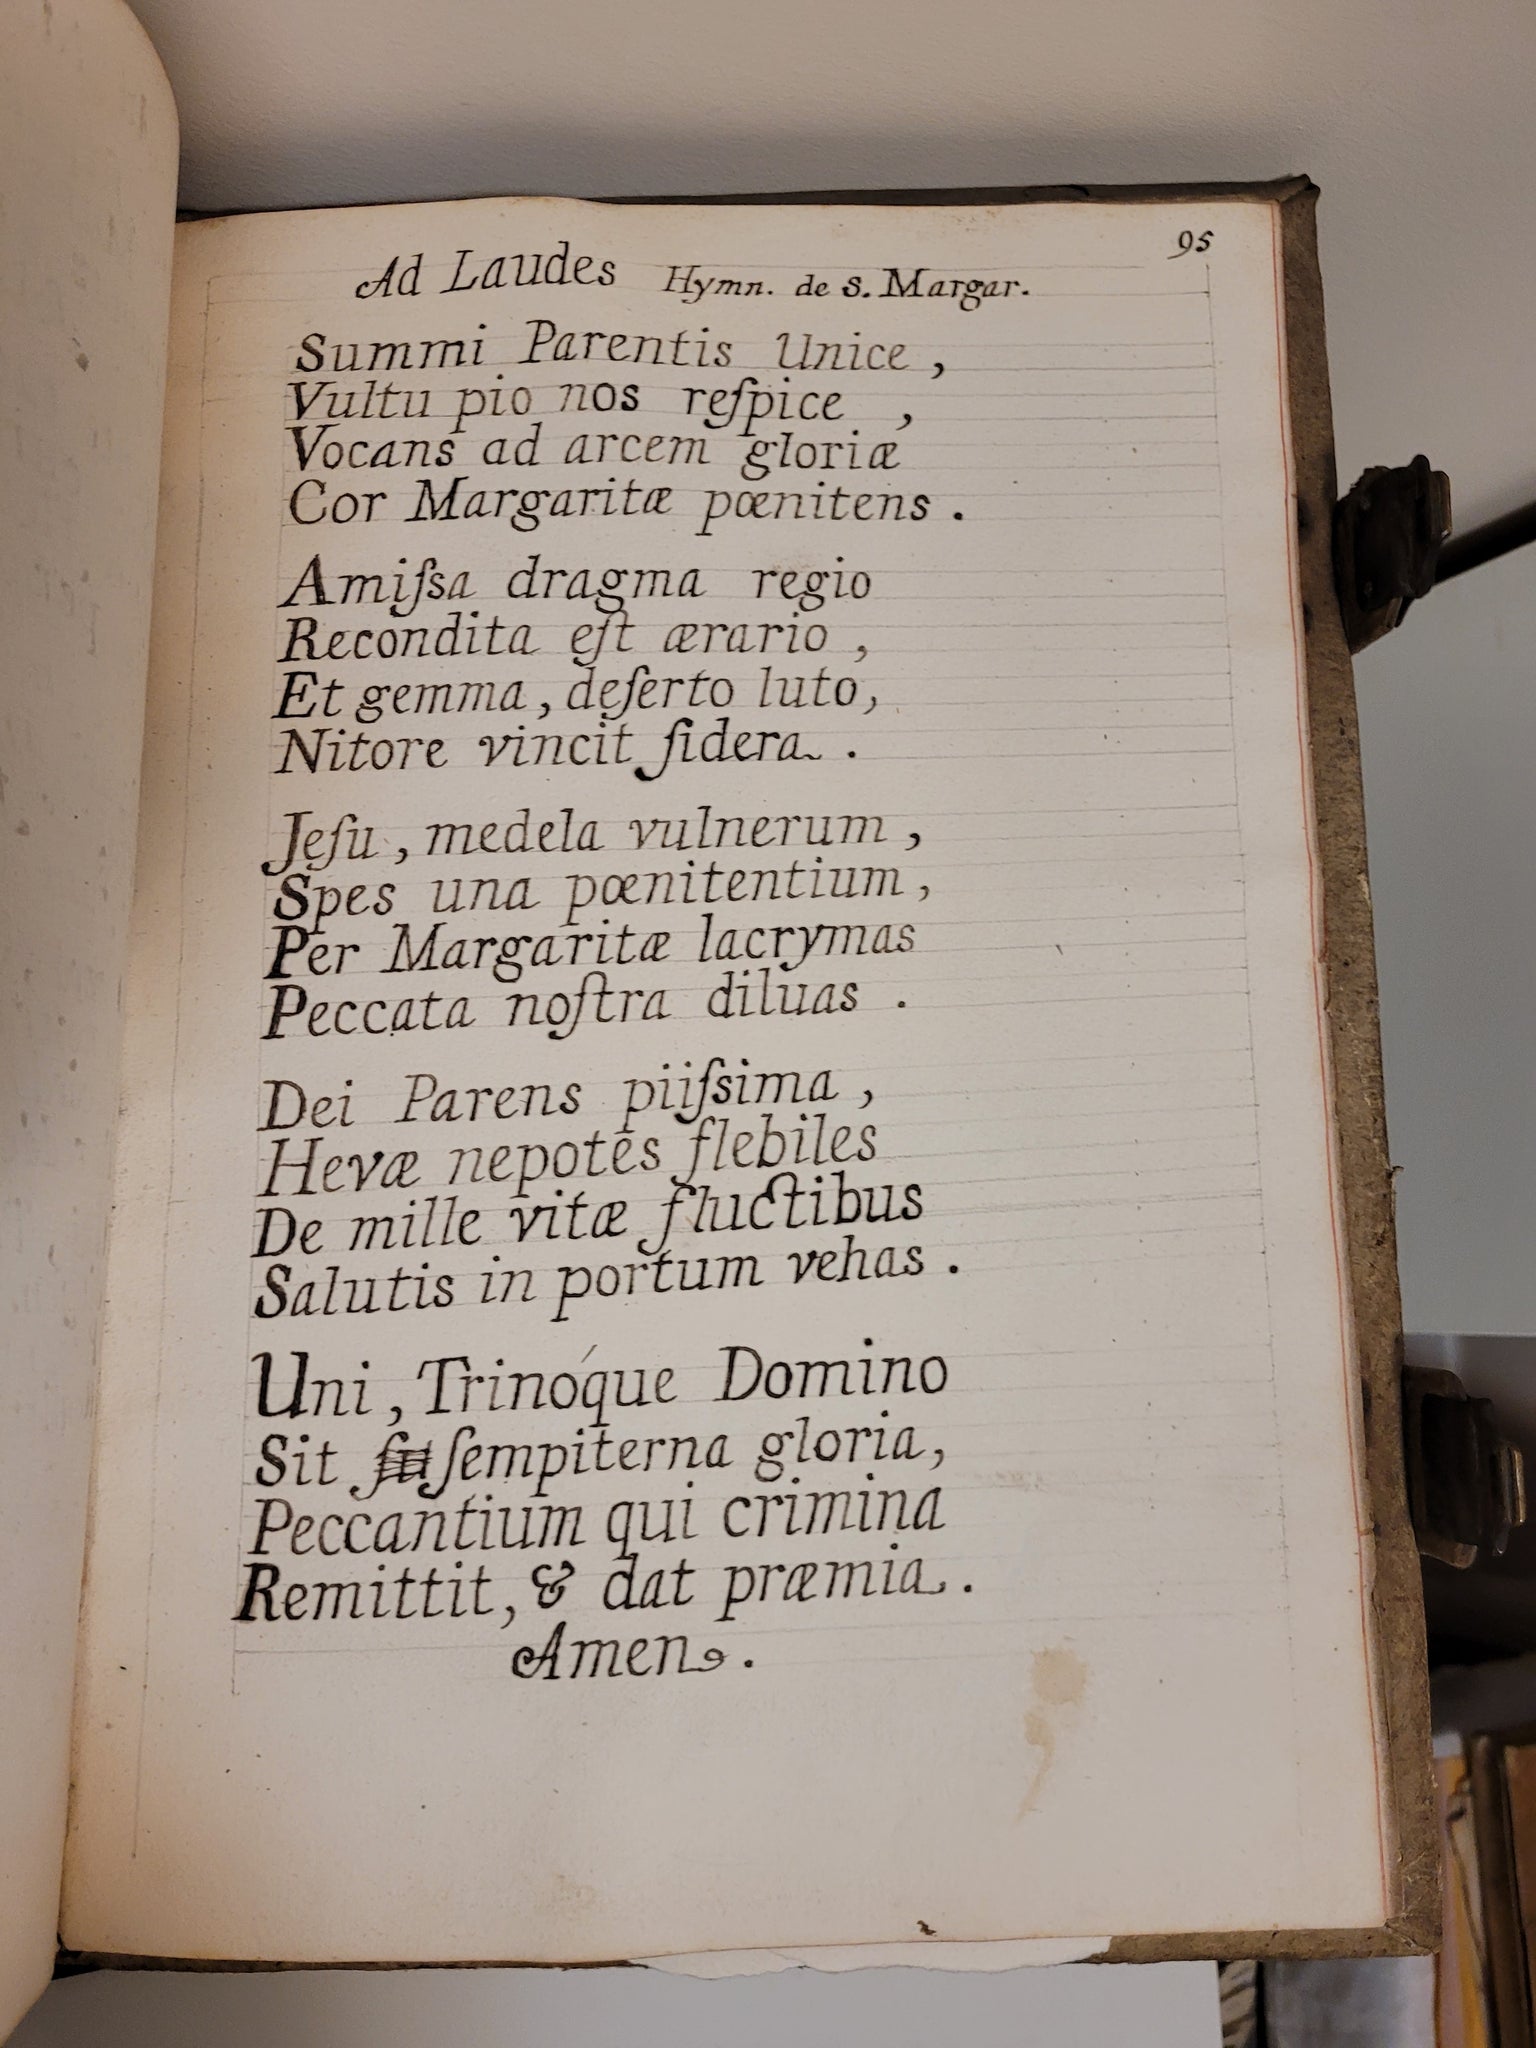 95
Ad Laudes Hymn. de S. Margar.
Summi Parentis Unice,
Vultu pio nos reſpice,
Vocans ad arcem gloriæ
Cor Margaritæ pœnitens.
Amiſsa dragma regio
Recondita eſt ærario,
Et gemma, deſerto luto,
Nitore vincit ſidera.
Jeſu, medela vulnerum,
Spes una pœnitentium,
Per Margaritæ lacrymas
Peccata noſtra diluas.
Dei Parens piiſsima,
Hevæ nepotes flebiles
De mille vitæ fluctibus
Salutis in portum vehas.
Uni, Trinóque Domino
Sit ſempiterna gloria,
Peccantium qui crimina
Remittit, & dat præmia.
Amen.